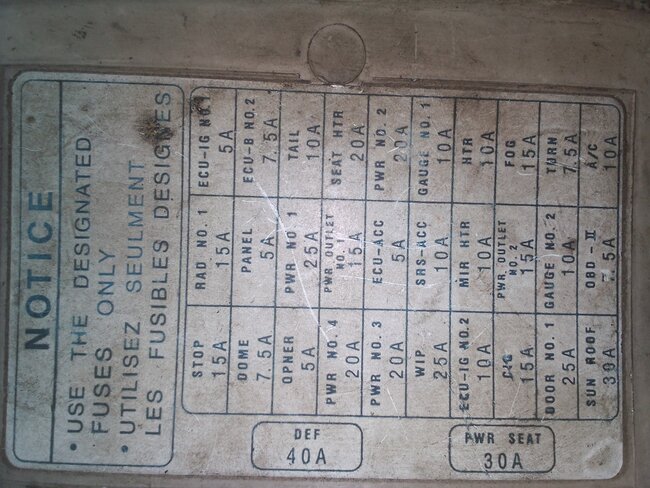 NOTICE
• USE THE DESIGNATED
FUSES ONLY
• UTILISEZ SEULMENT
LES FUSIBLES DESIGNES
STOP
15A
RAD NO. 1
15A
ECU-IG NO. 1
5A
DOME
7.5A
PANEL
5A
ECU-B NO. 2
7.5A
OPNER
5A
PWR NO 1
25A
TAIL
10A
PWR NO. 4
20A
PWR OUTLET
NO. 1
15A
SEAT HTR
20A
PWR NO. 3
20A
ECU-ACC
5A
PWR NO. 2
20A
WIP
25A
SRS-ACC
10A
GAUGE NO. 1
10A
ECU-IG NO.2
10A
MIR HTR
10A
HTR
10A
CIG
15A
PWR OUTLET
NO. 2
15A
FOG
15A
DOOR NO. 1
25A
GAUGE NO. 2
10A
TURN
7.5A
SUN ROOF
30A
OBD-II
5A
A/C
10A
DEF
40A
PWR SEAT
30A